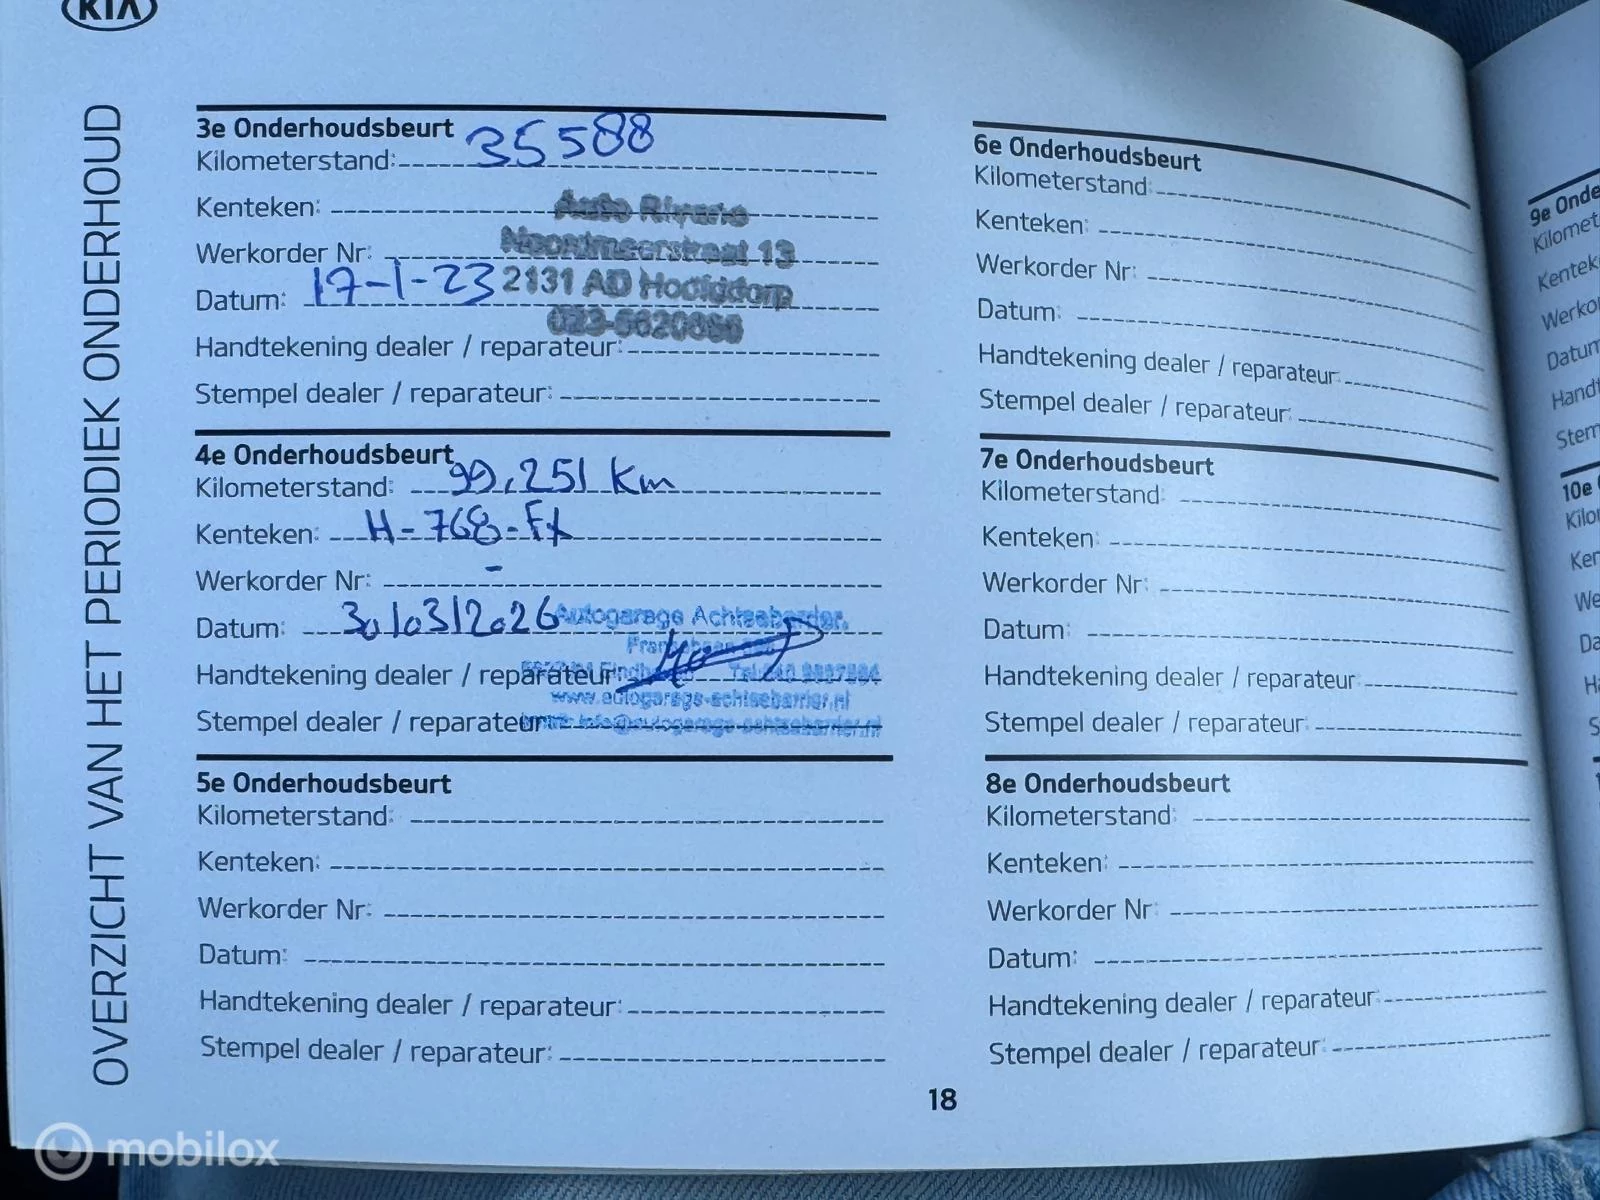 KIA
OVERZICHT VAN HET PERIODIEK ONDERHOUD
3e Onderhoudsbeurt
Kilometerstand: 35588
Kenteken:
Werkorder Nr:
Datum: 17-1-23
Handtekening dealer / reparateur:
Stempel dealer / reparateur:
Auto Rivano
Noordmeerstraat 13
2131 AD Hoofddorp
4e Onderhoudsbeurt
Kilometerstand: 99.251 Km
Kenteken: H-768-FX
Werkorder Nr: -
Datum: 30/03/2026
Handtekening dealer / reparateur
Stempel dealer / reparateur
Autogarage Achtsebarrier
www.autogarage-achtsebarrier.nl
info@autogarage-achtsebarrier.nl
5e Onderhoudsbeurt
Kilometerstand:
Kenteken:
Werkorder Nr:
Datum:
Handtekening dealer / reparateur:
Stempel dealer / reparateur:
6e Onderhoudsbeurt
Kilometerstand:
Kenteken:
Werkorder Nr:
Datum:
Handtekening dealer / reparateur:
Stempel dealer / reparateur:
7e Onderhoudsbeurt
Kilometerstand:
Kenteken:
Werkorder Nr:
Datum:
Handtekening dealer / reparateur:
Stempel dealer / reparateur:
8e Onderhoudsbeurt
Kilometerstand:
Kenteken:
Werkorder Nr:
Datum:
Handtekening dealer / reparateur:
Stempel dealer / reparateur:
9e Onde
Kilomet
Kentek
Werko
Datum
Handt
Stem
10e
Kilo
Ken
We
Da
18
mobilox